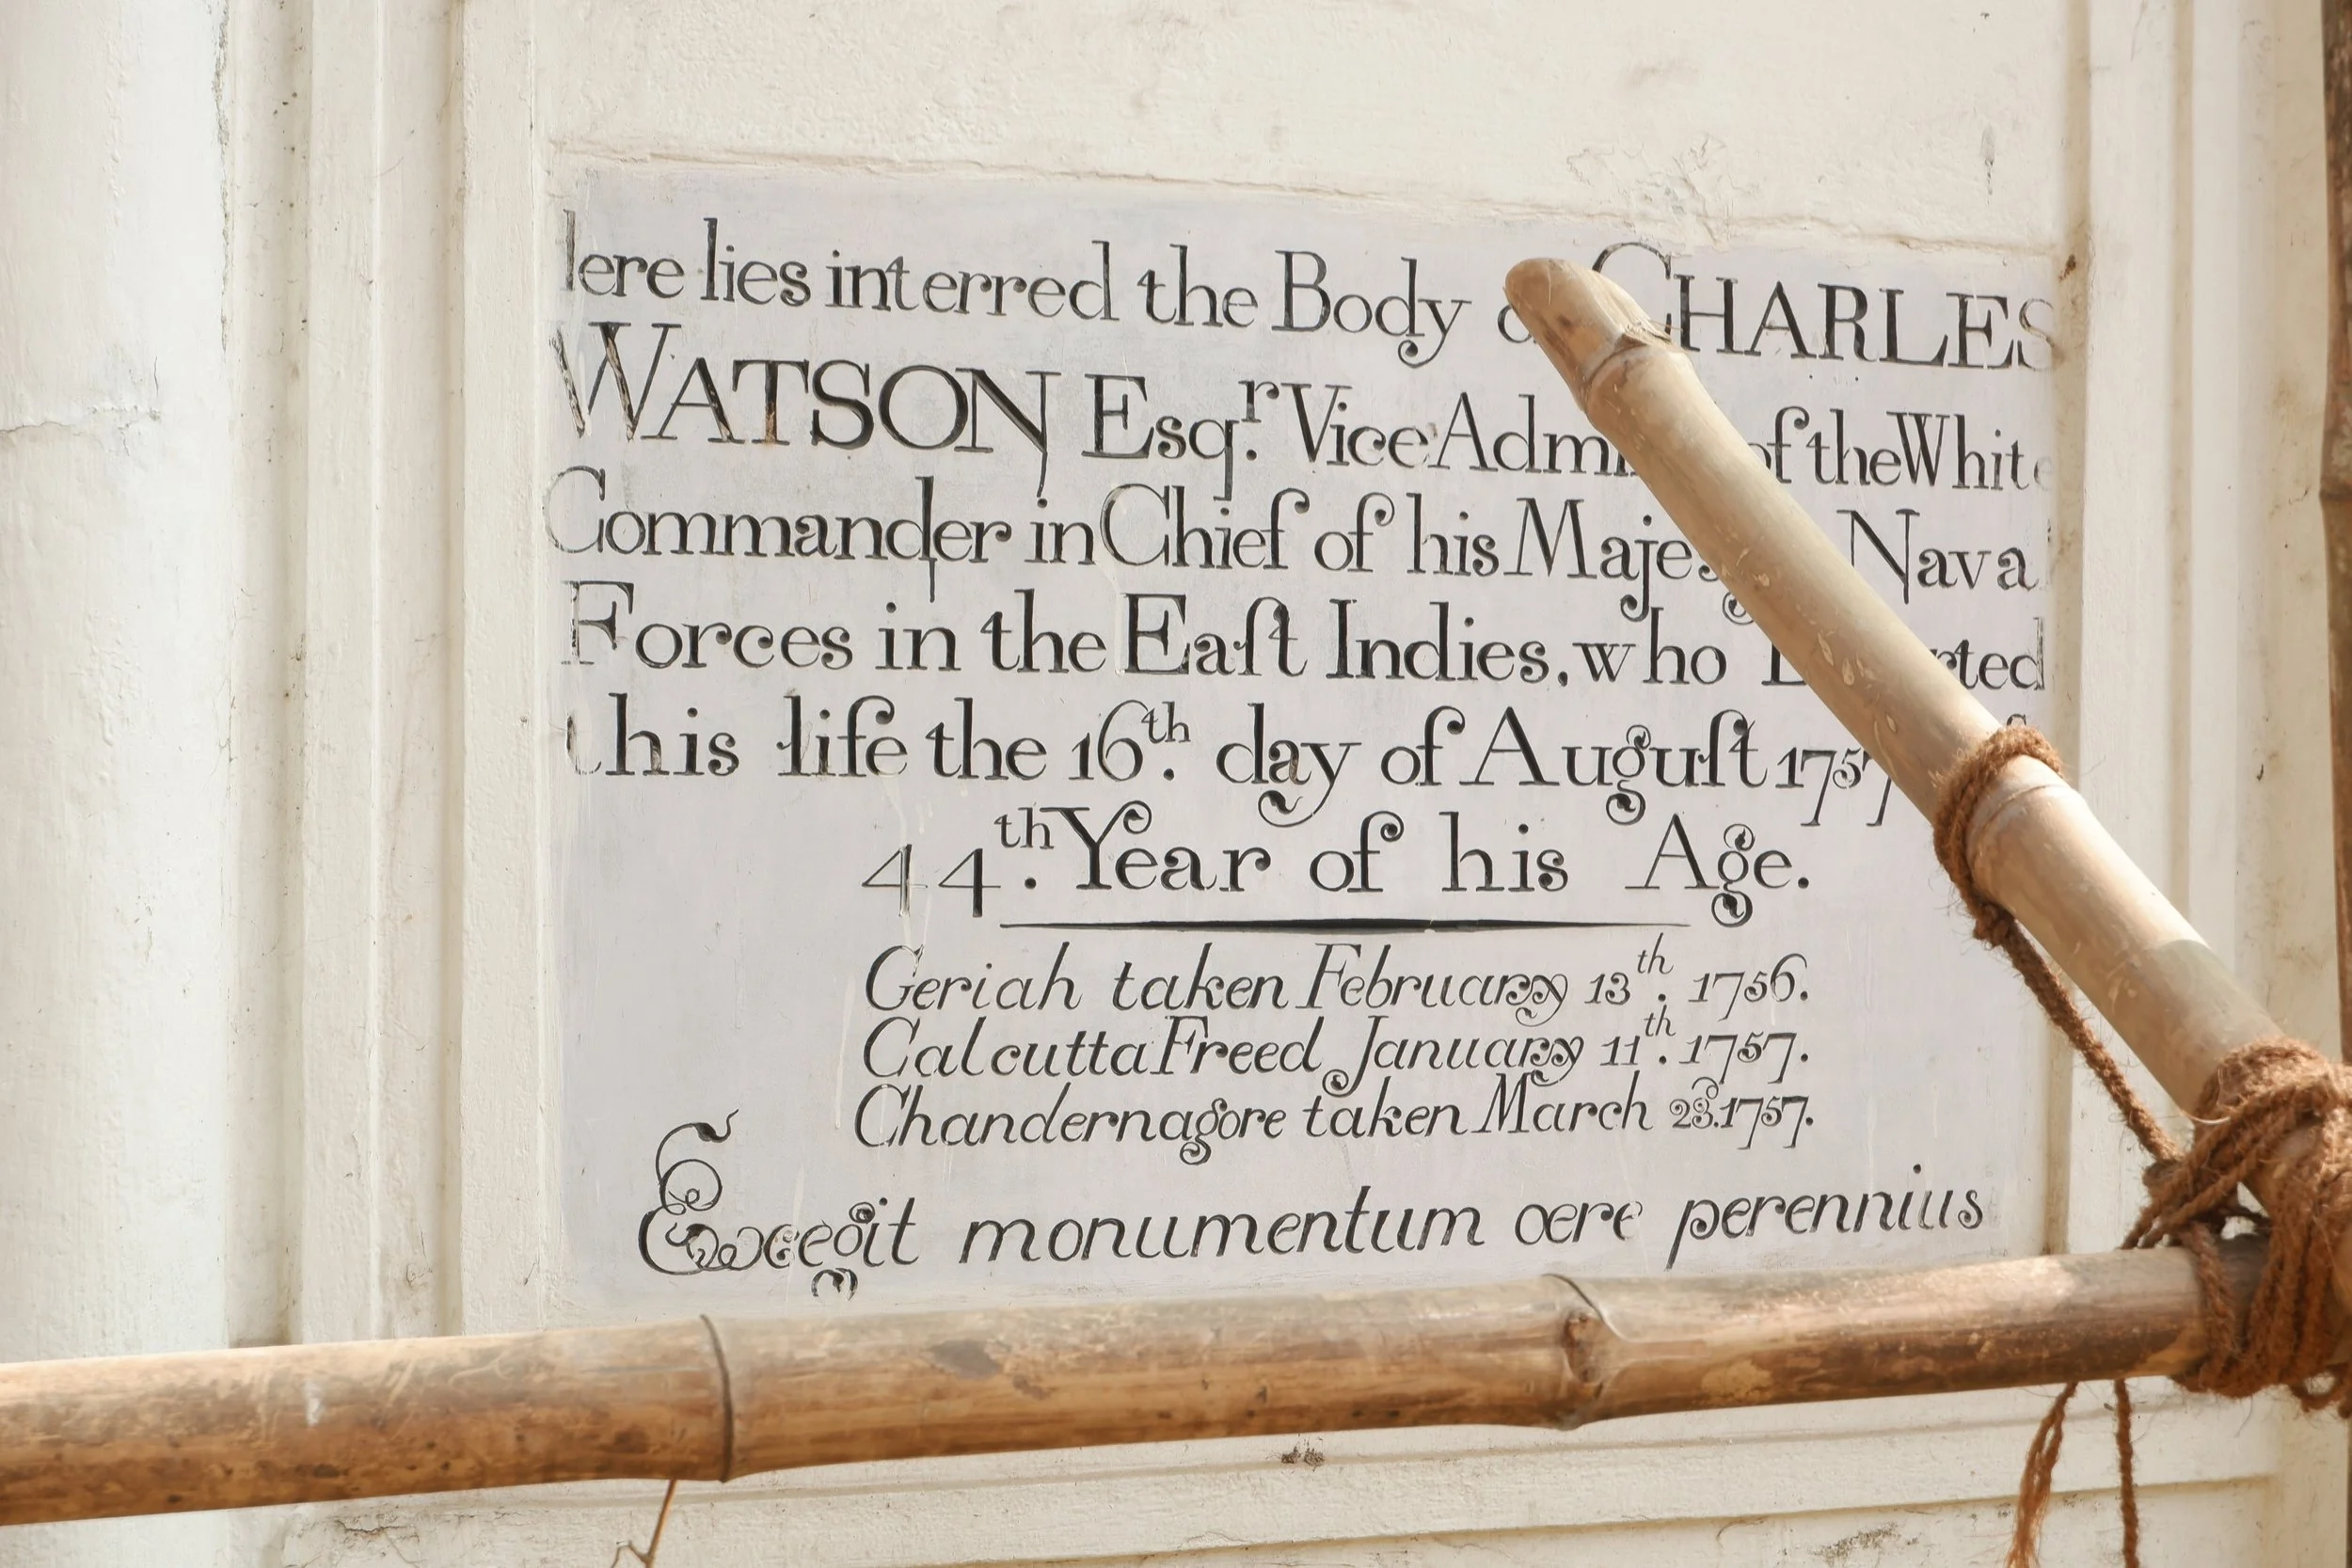 Here lies interred the Body of CHARLES
WATSON Esqr. Vice Admiral of the White
Commander in Chief of his Majesty's Naval
Forces in the Eaſt Indies, who Departed
this life the 16th. day of Auguſt 1757
44th. Year of his Age.
Geriah taken February 13th. 1756.
Calcutta Freed January 11th. 1757.
Chandernagore taken March 23. 1757.
Exegit monumentum ære perennius